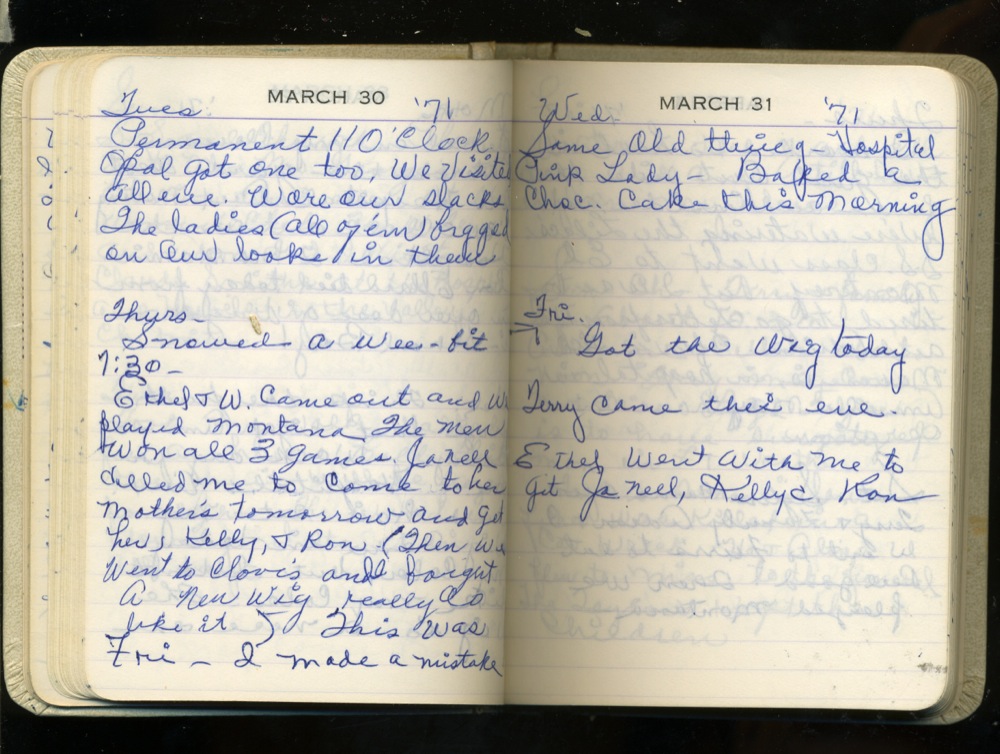 MARCH 30 '71
Tues
Permanent 1 10'Clock
Opal got one too, We Visited
all eve. Wore our slacks
The ladies (all of 'em) bragged
on our looks in them
Thurs
Snowed a wee-bit
7:30-
Ethel & W. Came out and We
played Montana The men
won all 3 games. Janell
called me to come to her
Mother's tomorrow and get
her, Kelly, & Ron. (Then we
went to Clovis and bought
A New Wig really do
like it) This was
Fri - I made a mistake
MARCH 31 '71
Wed.
Same Old thing - Hospital
Pink Lady - Baked a
Choc. Cake this Morning
Fri.
Got the Wig today
Terry came this eve.
Ethel Went With me to
get Janell, Kelly & Ron